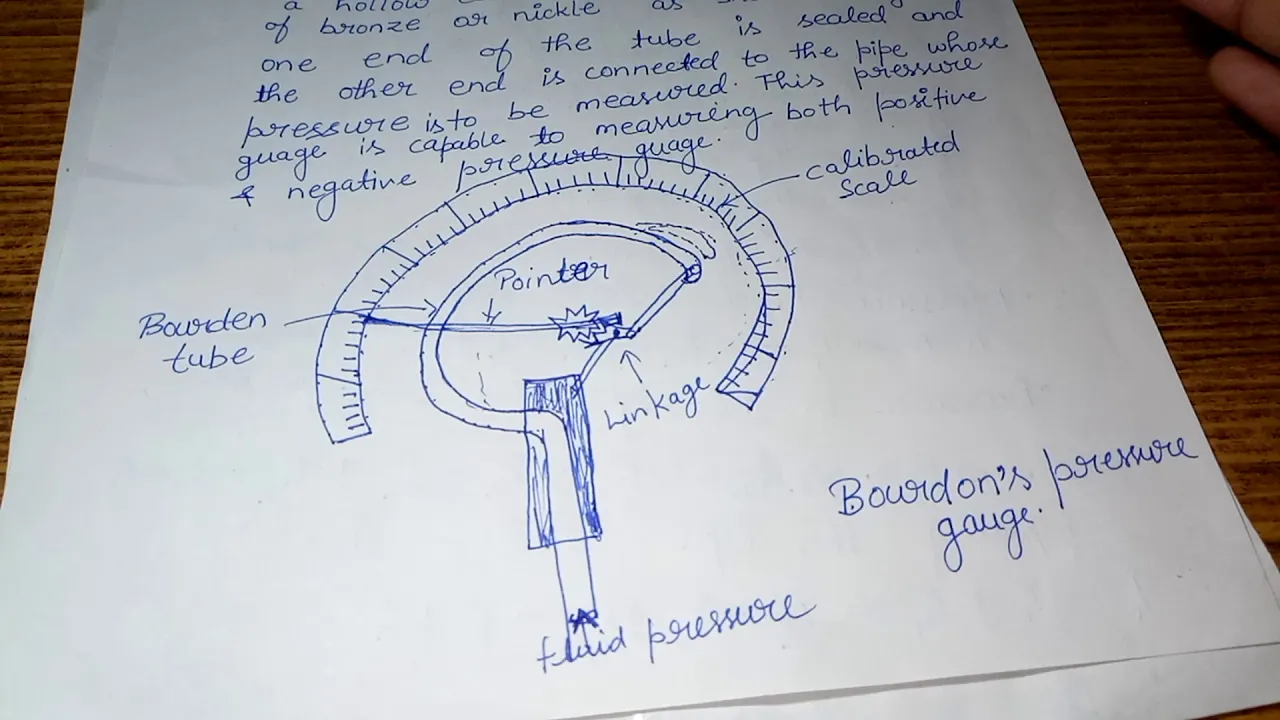 a hollow
of bronze or nickle as
one end of the tube is sealed and
the other end is connected to the pipe whose
pressure is to be measured. This pressure
guage is capable to measuring both positive
& negative pressure guage.
calibrated
scale
Pointer
Bourden
tube
Linkage
Bourdon's pressure
gauge.
fluid pressure